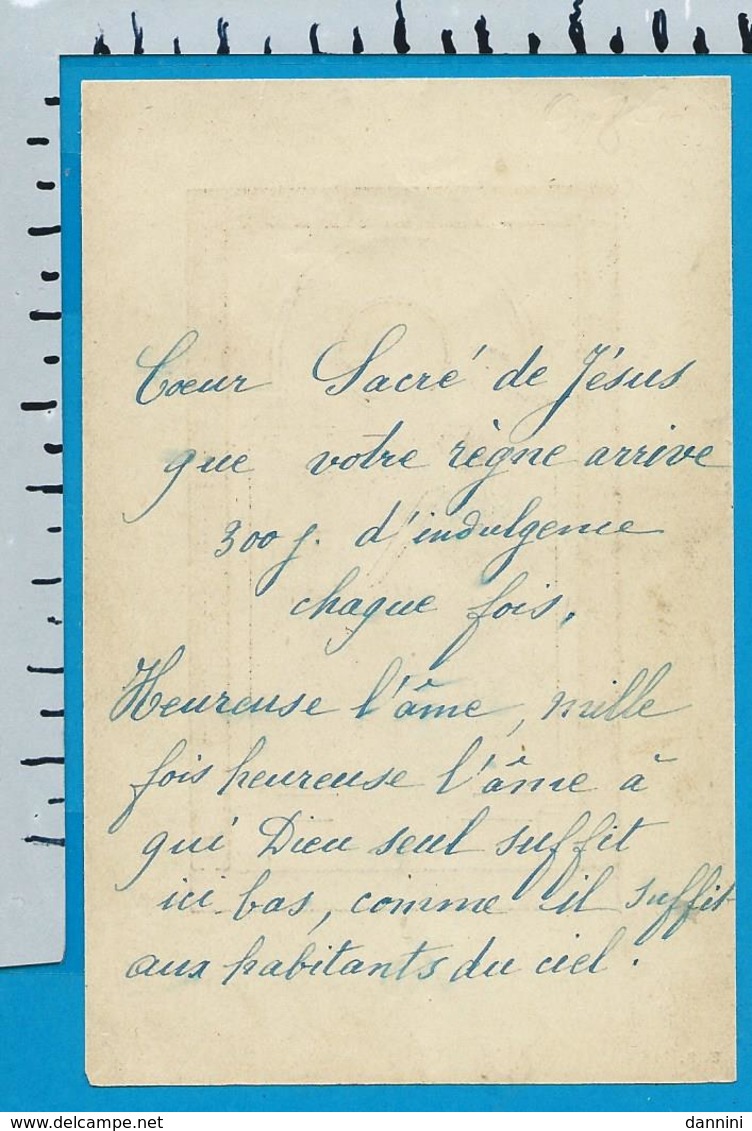 Cœur Sacré de Jésus
que votre règne arrive
300 j. d'indulgence
chaque fois.
Heureuse l'âme, mille
fois heureuse l'âme à
qui Dieu seul suffit
ici bas, comme il suffit
aux habitants du ciel.
dannini